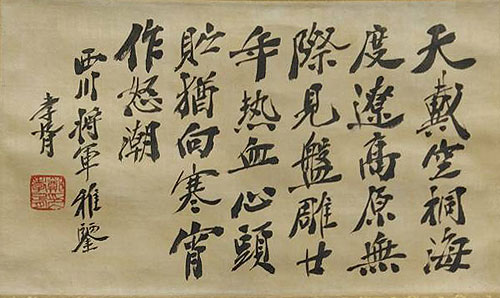 天戴空桐海
度遼高原無
際見盤雕廿
年热血心頭
貯猶向寒宵
作怒潮
西川将軍雅鑒
孝胥